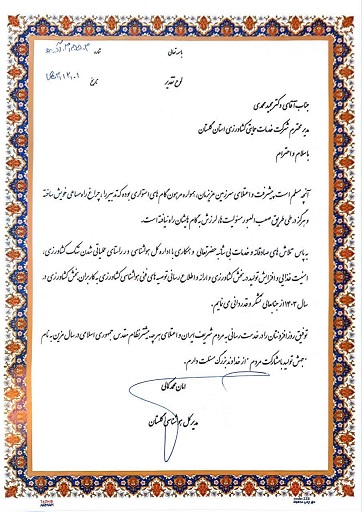 باسمه تعالی
لوح تقدیر
تاریخ
جناب آقای دکتر حمید محمدی
مدیر محترم شرکت خدمات حمایتی کشاورزی استان گلستان
با سلام و احترام
آنچه مسلم است، پیشرفت و اعتلای سرزمین عزیزمان، همواره مرهون گام های استواری بوده که تدبیر را چراغ راه مساعی خویش ساخته
و هرگز در طی طریق صعب العبور مسئولیت ها، لرزش به گام هایشان راه نیافته است.
به پاس تلاش های صادقانه و خدمات بی شائبه حضرتعالی و همکاری با اداره کل هواشناسی در راستای عملیاتی شدن تهک کشاورزی،
امنیت غذایی و افزایش تولید در بخش کشاورزی و ارائه و اطلاع رسانی توصیه های فنی هواشناسی کشاورزی به کاربران بخش کشاورزی در
سال ۱۴۰۳ از جنابعالی تشکر و قدردانی می نمایم.
توفیق روزافزونتان را در خدمت رسانی به مردم شریف ایران و اعتلای هر چه بیشتر نظام مقدس جمهوری اسلامی در سال مزین به نام
"جهش تولید با مشارکت مردم" از خداوند بزرگ مسئلت دارم.
مدیر کل هواشناسی گلستان